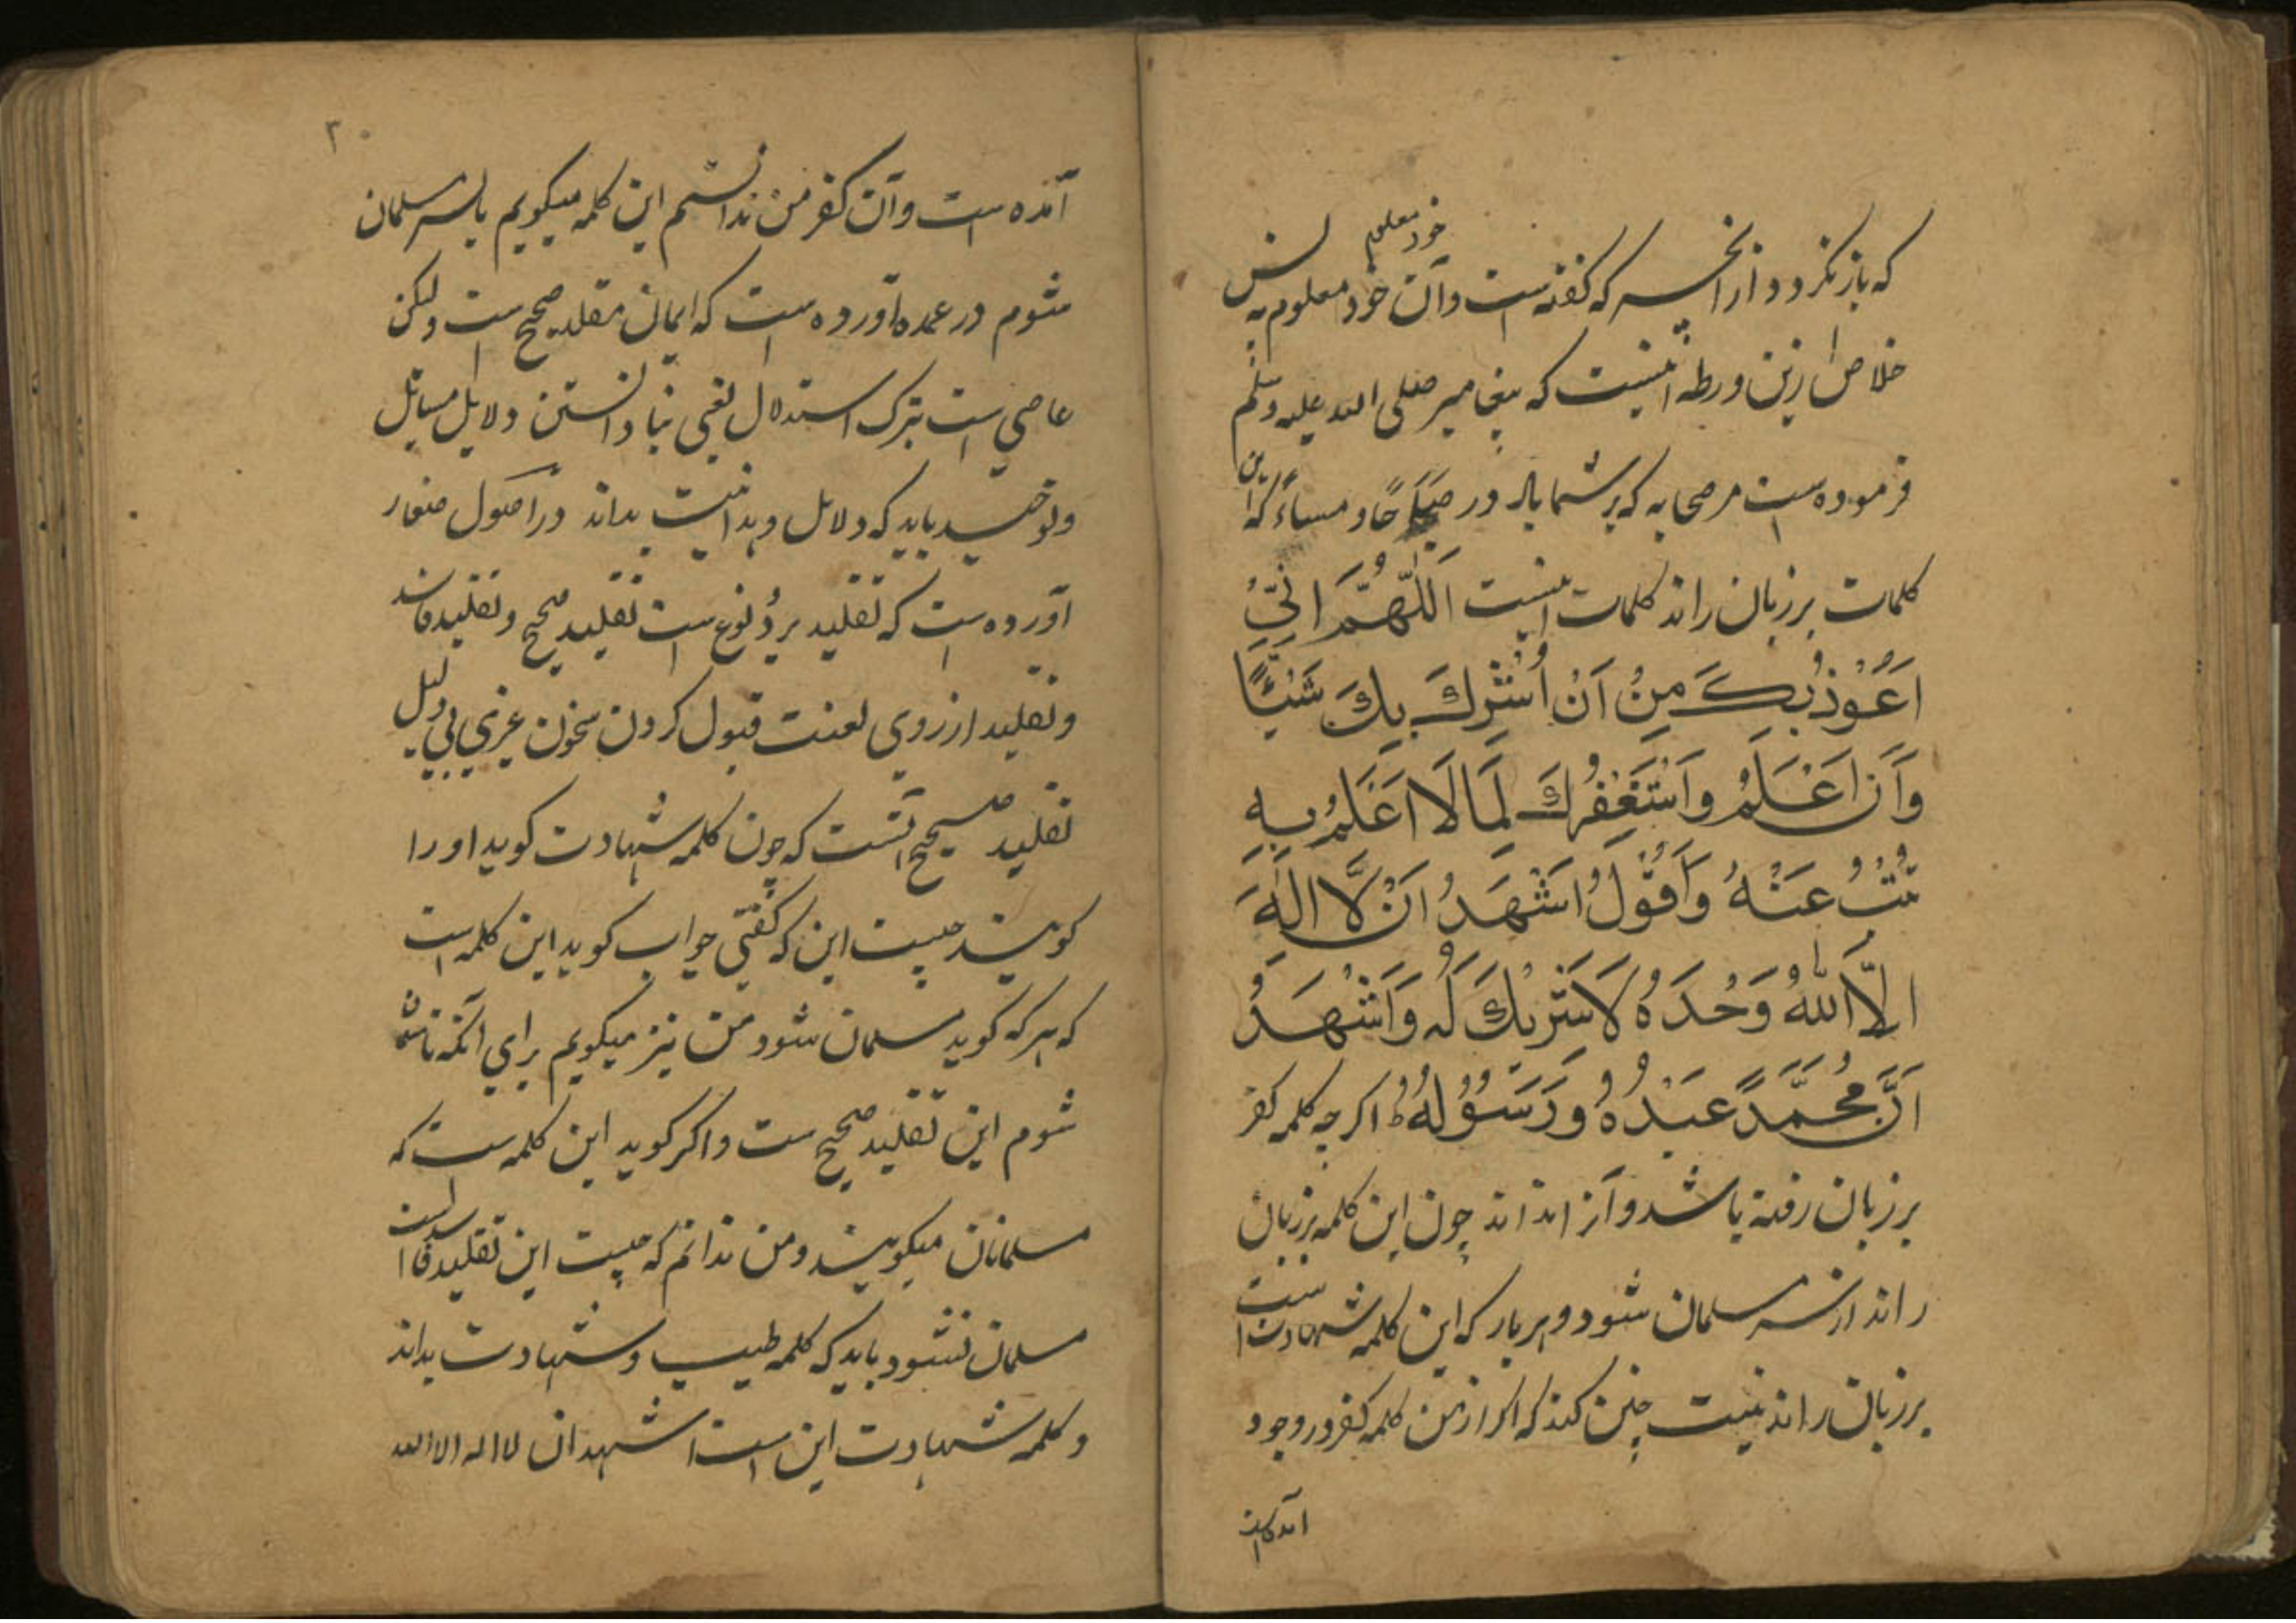 خود معلوم
که باز نکردد از انچسه که کفته است وآن خود معلوم به پس
خلاص ازین ورطه اینست که پیغامبر صلی الله علیه وسلم
فرموده است مر صحابه که بر شما باد در صباحًا و مساءً که این
کلمات بر زبان راند کلمات اینست اَللّٰهُمَّ اِنِّیْ
اَعُوْذُبِكَ مِنْ اَنْ اُشْرِكَ بِكَ شَيْئًا
وَاَنَا اَعْلَمُ وَاَسْتَغْفِرُكَ لِمَا لَا اَعْلَمُ بِهٖ
تُبْتُ عَنْهُ وَاَقُوْلُ اَشْهَدُ اَنْ لَّا اِلٰهَ
اِلَّا اللّٰهُ وَحْدَهٗ لَا شَرِيْكَ لَهٗ وَاَشْهَدُ
اَنَّ مُحَمَّدًا عَبْدُهٗ وَرَسُوْلُهٗ اکرچه کلمه کفر
بر زبان رفته باشد و آنرا نداند چون این کلمه بر زبان
راند از سر مسلمان شود و هر بار که این کلمه شهادت است
بر زبان راند نیت چنین کند که اکر از من کلمه کفر در وجود
امده است
۲۰
آمده است وآن کفر من ندانستم این کلمه میکویم باز سر مسلمان
شوم در عمده آورده است که ایمان مقلد صحیح است ولیکن
عاصی است بترک استدلال یعنی بنا دانستن دلایل مسایل
وتوحید باید که دلایل وحدانیت بداند در اصول صفار
آورده است که تقلید بر دو نوع است تقلید صحیح وتقلید فاسد
وتقلید از روی لعنت قبول کردن سخون غیری بی دلیل
تقلید صحیح آنست که چون کلمه شهادت کوید او را
کویند چیست این که کفتی جواب کوید این کلمه است
که هر که کوید مسلمان شود من نیز میکویم برای آنکه تا مسلمان
شوم این تقلید صحیح ست واکر کوید این کلمه ست که
مسلمانان میکویند و من ندانم که چیست این تقلید فاسد است
مسلمان نشود باید که کلمه طیب وشهادت بداند
وکلمه شهادت این است اشهد ان لا اله الا الله